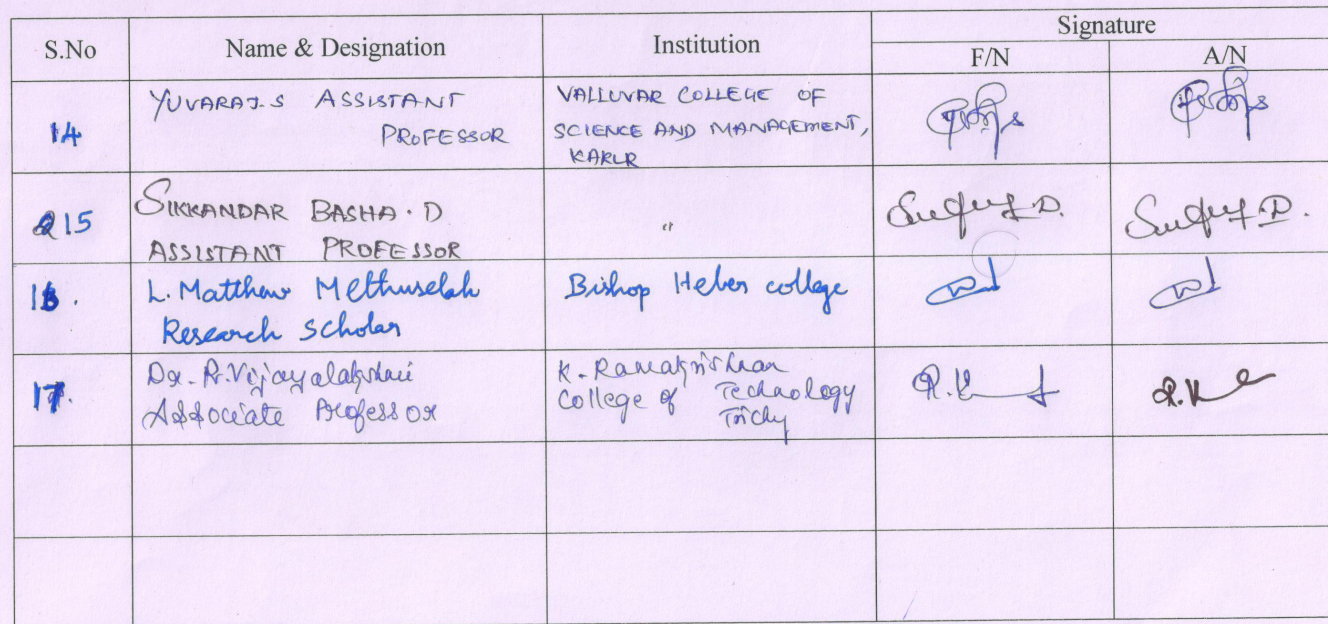 S.No Name & Designation Institution Signature
F/N A/N
14 YUVARAJ.S ASSISTANT PROFESSOR
VALLUVAR COLLEGE OF
SCIENCE AND MANAGEMENT,
KARUR
15 SIKKANDAR BASHA.D
ASSISTANT PROFESSOR
"
16. L. Matthew Methuselah
Research Scholar
Bishop Heber college
17. Dr. R. Vijayalakshmi
Associate Professor
K. Ramakrishnan
College of Technology
Trichy
R.V
R.V